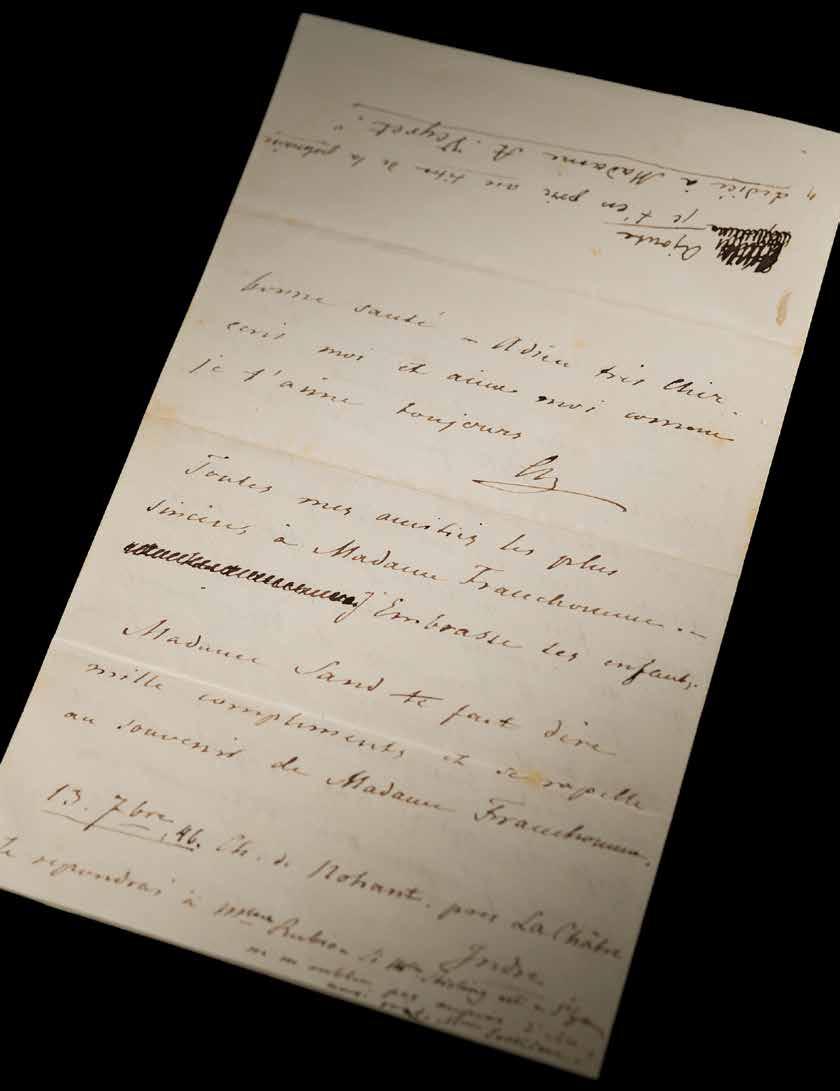 Ajoute
je t'en prie au titre de la polonaise
" dediée à Madame A. Veyret. "
bonne santé – Adieu très cher.
ecris moi et aime moi comme
je t'aime toujours
Ch
Toutes mes amitiés les plus
sincères à Madame Franchomme. –
J'Embrasse tes enfants.
Madame Sand te fait dire
mille compliments et se rappelle
au souvenir de Madame Franchomme.
13. 7bre, 46. Ch. de Nohant. près La Châtre
Indre.
Je repondrai à Mme Rubio